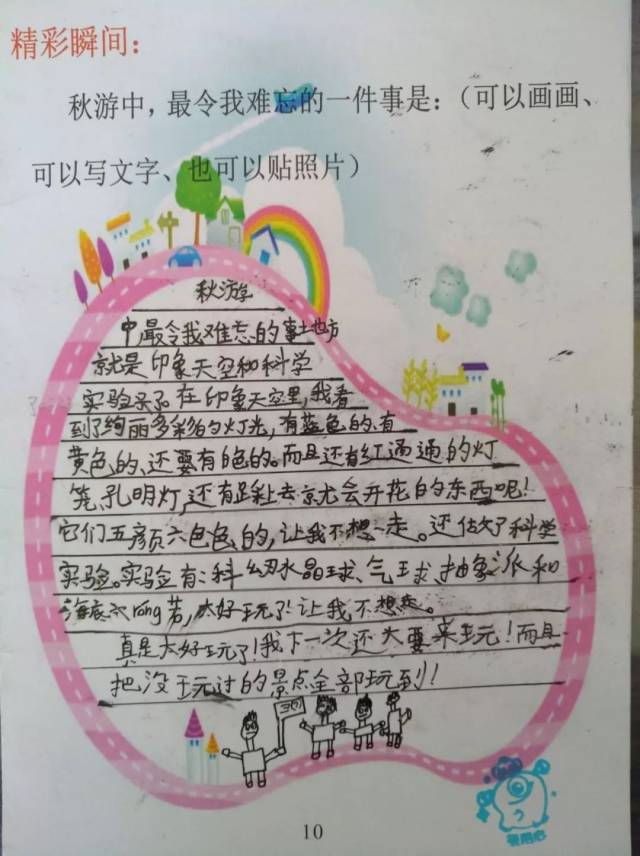 精彩瞬间：
秋游中，最令我难忘的一件事是：（可以画画、
可以写文字、也可以贴照片）
秋游
中最令我难忘的事地方
就是印象天空和科学
实验呆了。在印象天空里，我看
到了绚丽多彩的灯光，有蓝色的、有
黄色的、还要有白色的。而且还有红通通的灯
笼，孔明灯，还有踩上去就会开花的东西呢！
它们五颜六色色的，让我不想走。还做了科学
实验。实验有：科幻水晶球、气球抽象派和
海底火rong岩，太好玩了！让我不想走。
真是太好玩了！我下一次还大要来玩！而且
把没玩过的景点全部玩到！
10